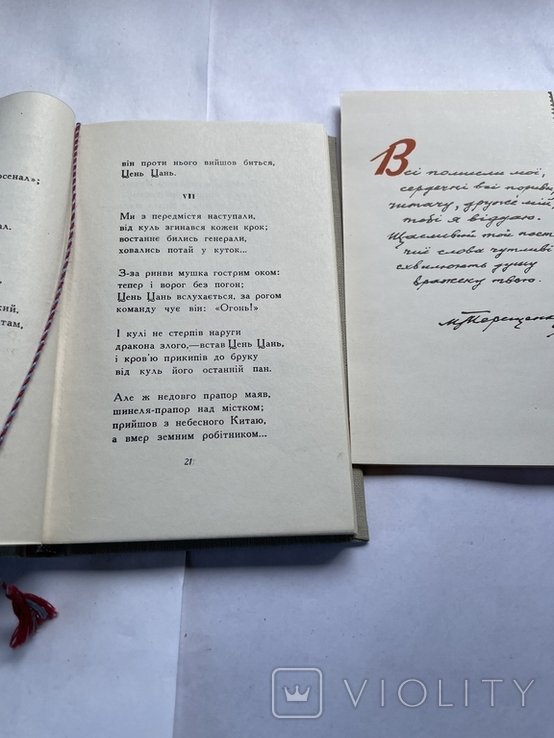 рсенал»;
ал.
кий.
там,
він проти нього вийшов биться,
Цень Цань.
VII
Ми з передмістя наступали,
від куль згинався кожен крок;
востаннє бились генерали,
ховались потай у куток...
З-за ринви мушка гострим оком:
тепер і ворог без погон;
Цень Цань вслухається, за рогом
команду чує він: «Огонь!»
І кулі не стерпів наруги
дракона злого,—встав Цень Цань,
і кров'ю прикипів до бруку
від куль його останній пан.
Але ж недовго прапор маяв,
шинеля-прапор над містком;
прийшов з небесного Китаю,
а вмер земним робітником...
21
Всі помисли мої,
сердечні всі порив
читачу, друже мій,
тобі я віддаю.
Щасливий той, пост
чиї слова чутливі
схвилюють душу
вразжеску твою.
М. Терещенк
VIOLITY